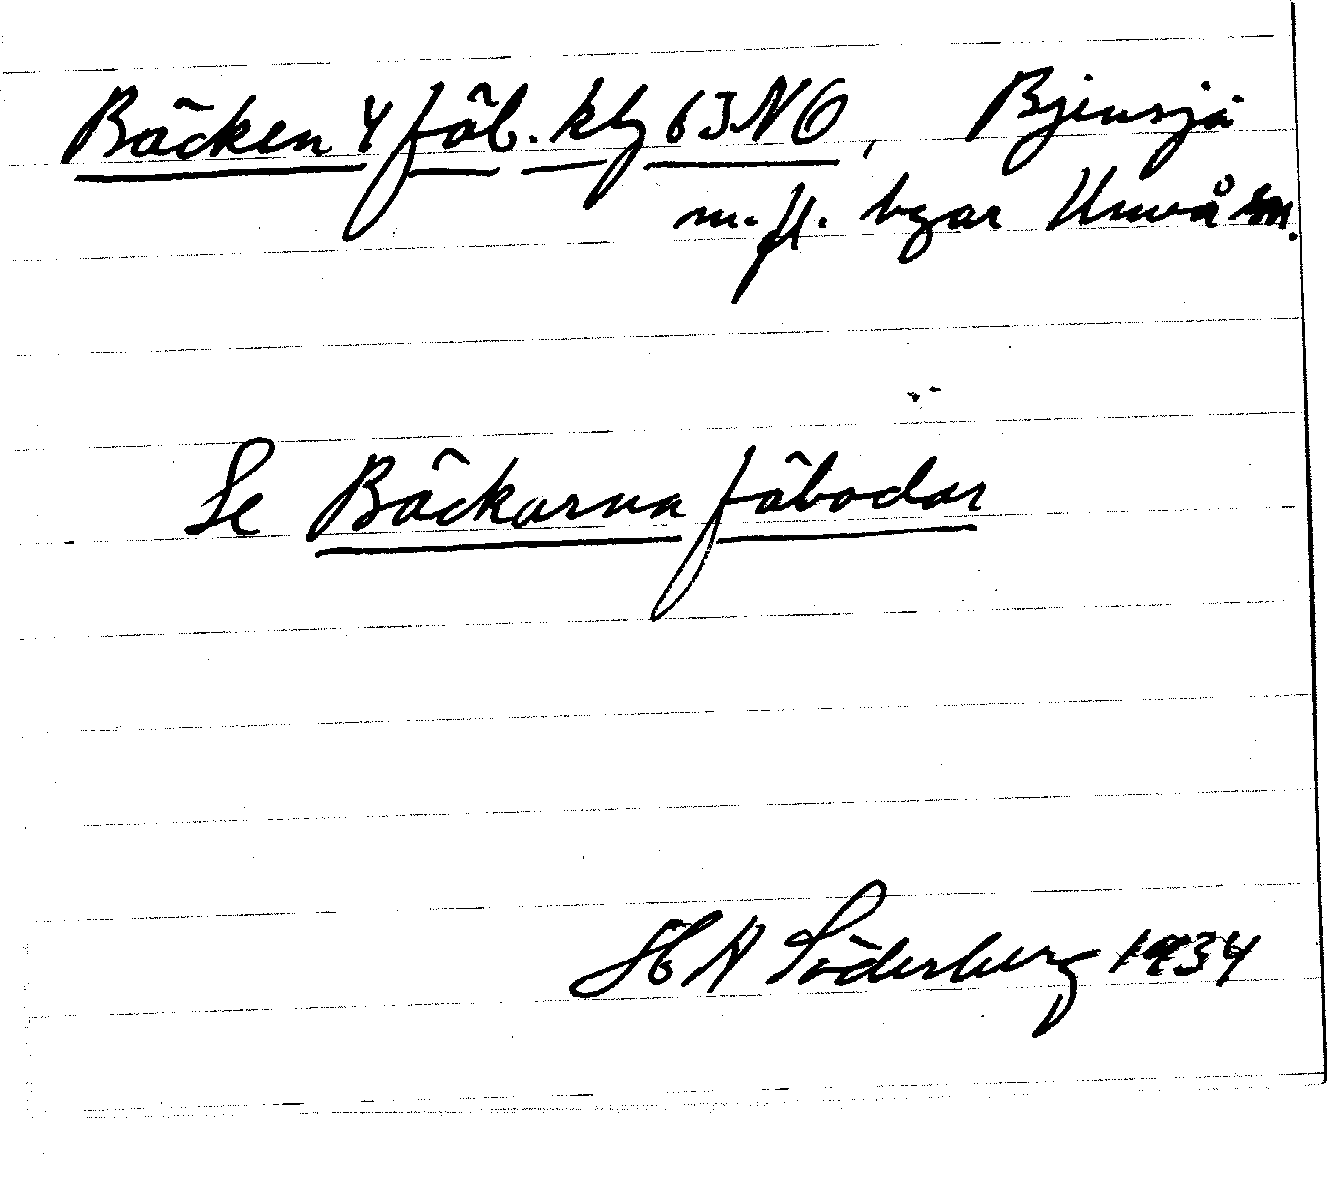 Bäcken 4 fäb. kbl 63 NO, Bjensjö
m.fl. byar Umeå sn.
Se Bäckarna fäbodar
H A Söderberg 1934